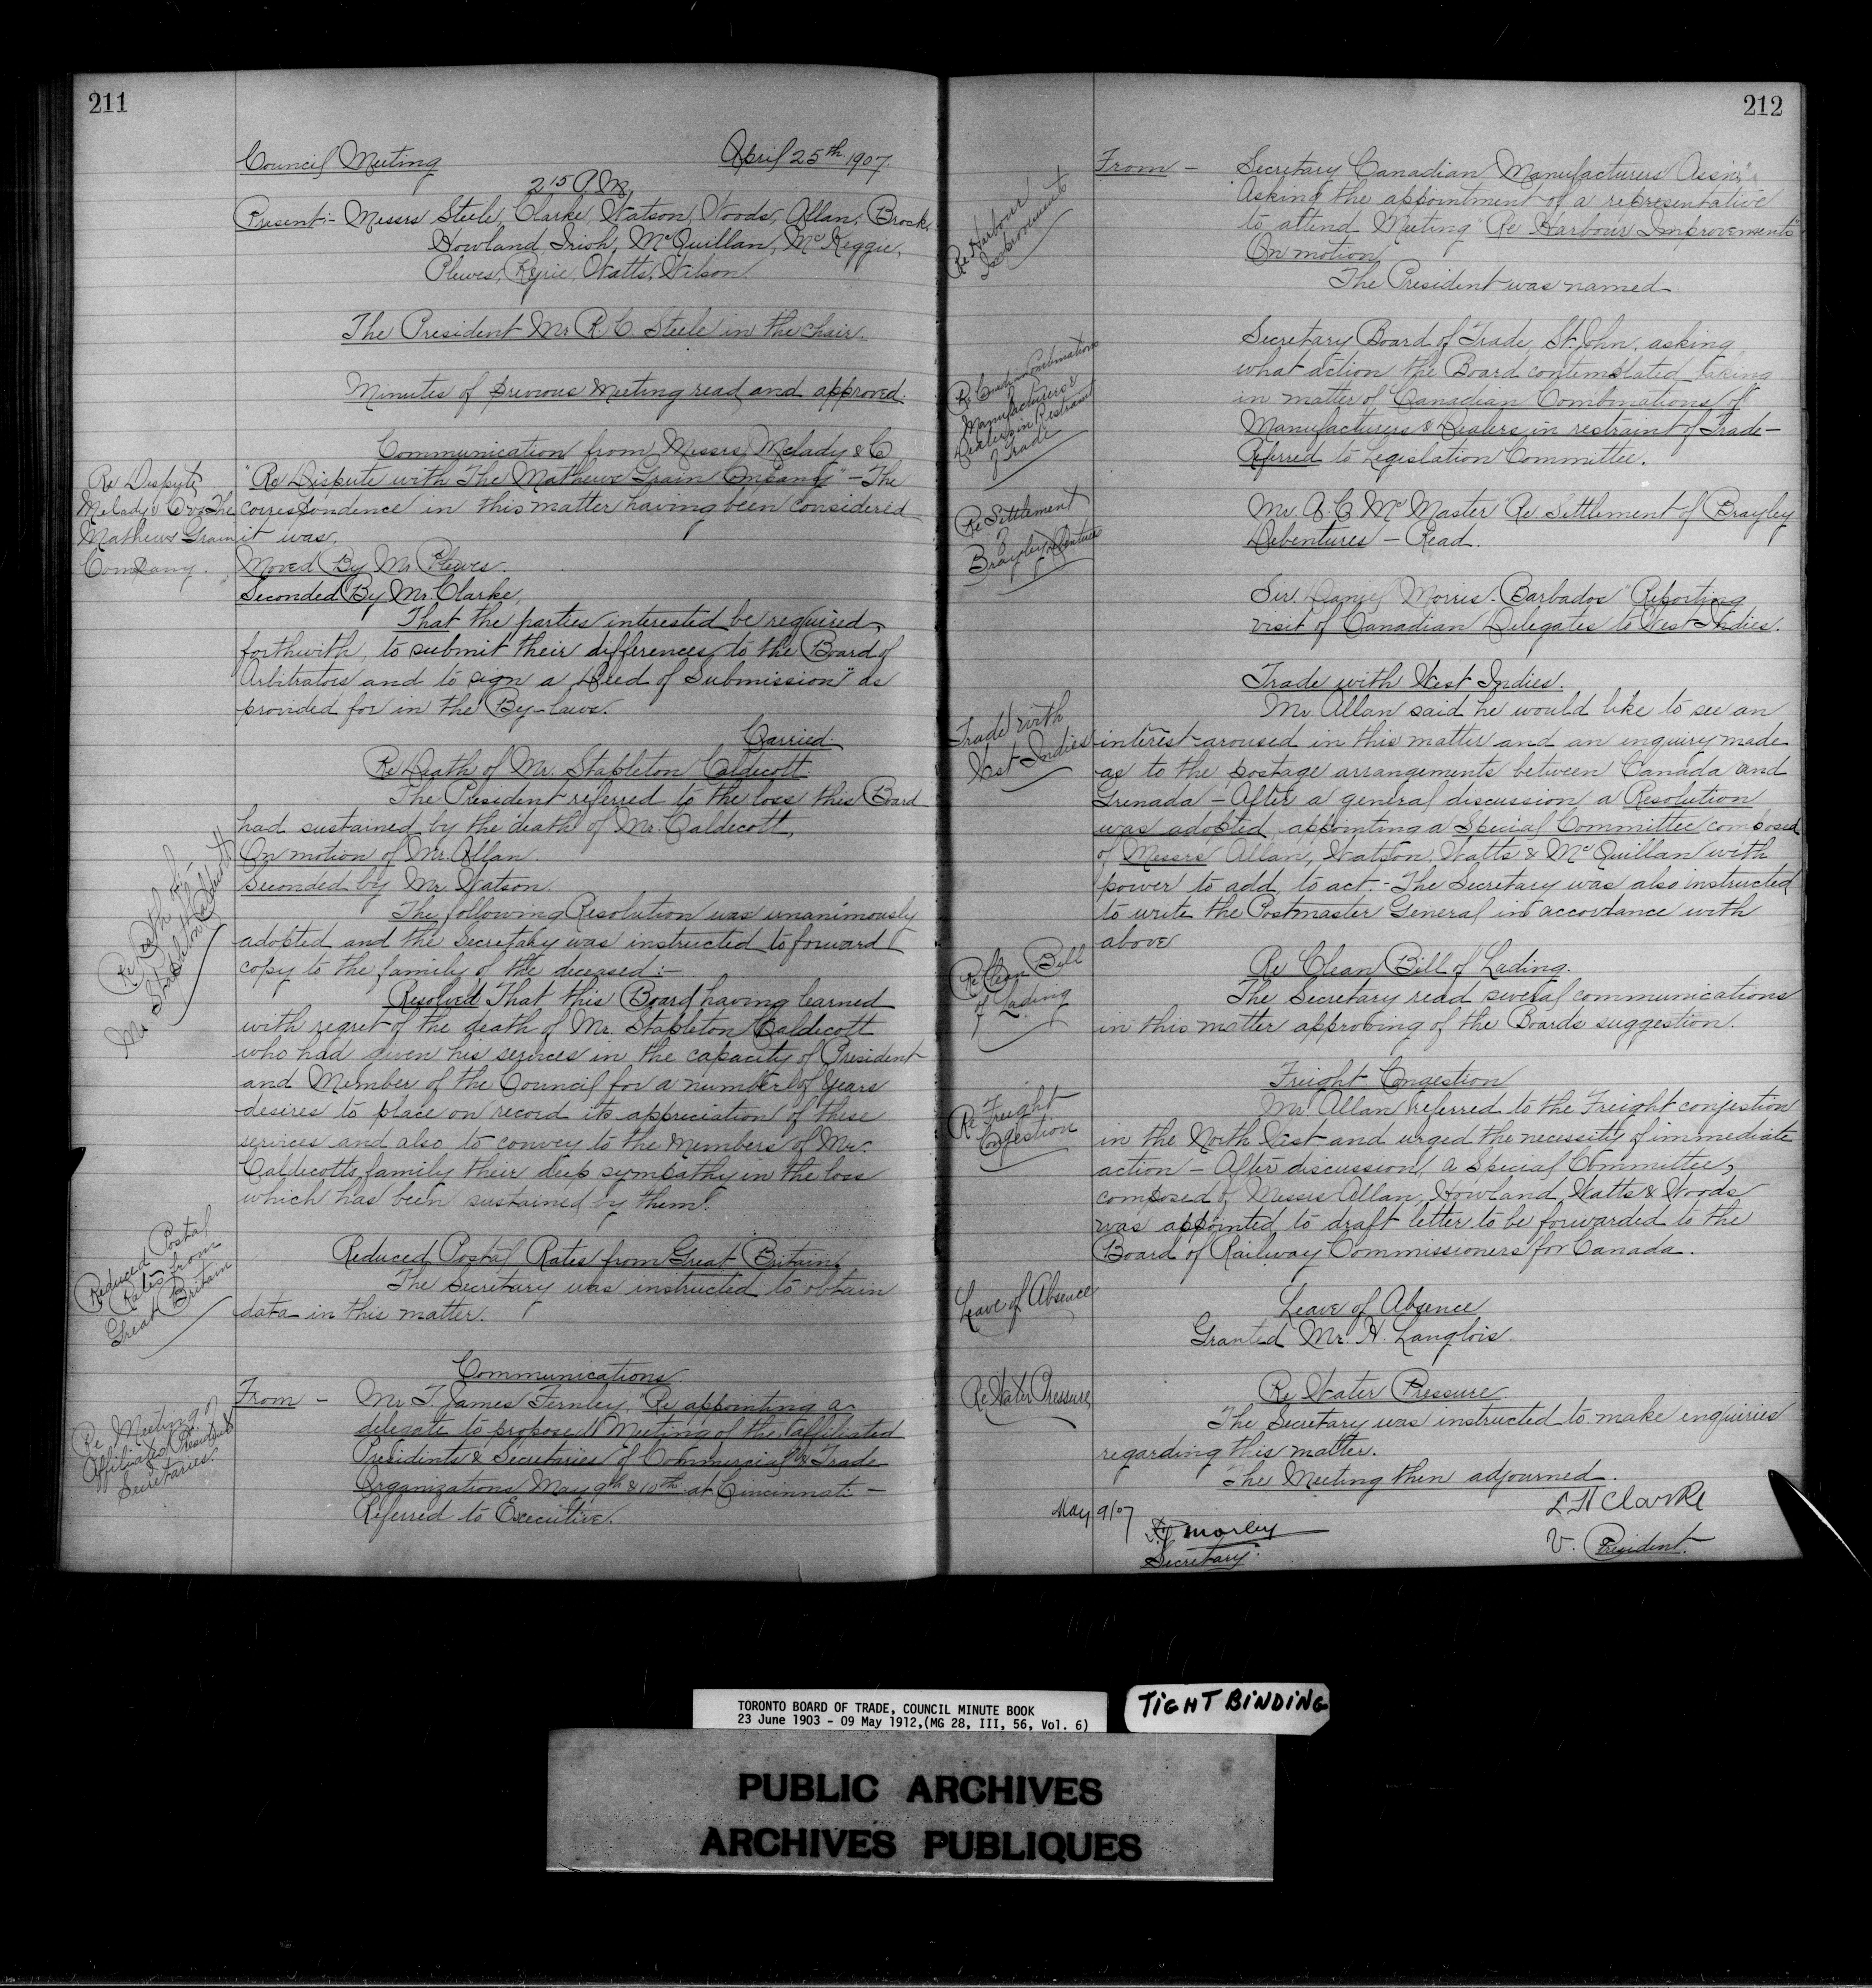 211
Council Meeting April 25th 1907.
2 15 P.M,
Present:- Messrs Steele, Clarke, Watson, Woods, Allan, Brock,
Howland, Irish, McQuillan, McKeggie,
Plewes, Ryrie, Watts, Wilson
The President Mr R. C. Steele in the Chair.
Minutes of previous Meeting read and approved.
Communication from Messrs Melady & C
Re Dispute
Melady & Co vs The
Mathews Grain
Company.
"Re Dispute with The Mathews Grain Company" - The
correspondence in this matter having been considered
it was.
Moved By Mr. Plewes.
Seconded By Mr. Clarke,
That the parties interested be required,
forthwith, to submit their differences to the Board of
Arbitrators and to sign a Deed of Submission" as
provided for in the By-laws.
Carried.
Re Death of Mr. Stapleton Caldecott
The President referred to the loss this Board
had sustained by the death of Mr. Caldecott,
Re Death of
Mr. Stapleton Caldecott
On motion of Mr. Allan.
Seconded by Mr. Watson
The following Resolution was unanimously
adopted and the Secretary was instructed to forward
copy to the family of the deceased:-
Resolved That this Board having learned
with regret of the death of Mr. Stapleton Caldecott
who had given his services in the capacity of President
and Member of the Council for a number of years
desires to place on record its appreciation of these
services and also to convey to the Members of Mr.
Caldecotts family their deep sympathy in the loss
which has been sustained by them".
Reduced Postal
Rates from
Great Britain
Reduced Postal Rates from Great Britain,
The Secretary was instructed to obtain
data in this matter.
Communications
Re Meeting of
Affiliated Presidents &
Secretaries.
From - Mr. T. James Fernley, "Re appointing a
delegate to proposed Meeting of the affiliated
Presidents & Secretaries of Commercial & Trade
Organizations May 9th & 10th at Cincinnati -
Referred to Executive.
212
Re Harbour
Improvements
From - Secretary Canadian Manufacturers Assn."
Asking the appointment of a representative
to attend Meeting "Re Harbour Improvements"
On motion
The President was named.
Re Canadian Combinations
Manufacturers &
Dealers in Restraint
of Trade
Secretary Board of Trade, St. John, asking
what action the Board contemplated taking
in matter of Canadian Combinations of
Manufacturers & Dealers in restraint of Trade -
Referred to Legislation Committee.
Re Settlement
of
Brayley Debentures
Mr. A. C. McMaster "Re Settlement of Brayley
Debentures - Read.
Sir. Daniel Morris. Barbados "Reporting
visit of Canadian Delegates to West Indies.
Trade with West Indies.
Trade with
West Indies
Mr Allan said he would like to see an
interest aroused in this matter and an enquiry made
as to the postage arrangements between Canada and
Grenada - After a general discussion a Resolution
was adopted appointing a Special Committee composed
of Messrs Allan, Watson, Watts & McQuillan with
power to add, to act. - The Secretary was also instructed
to write the Postmaster General in accordance with
above
Re Clean Bill
of Lading
Re Clean Bill of Lading.
The Secretary read several communications
in this matter approving of the Boards suggestion.
Re Freight
Congestion
Freight Congestion
Mr. Allan referred to the Freight conjestion
in the North West and urged the necessity of immediate
action - After discussion a Special Committee,
composed of Messrs Allan, Howland, Watts & Woods,
was appointed to draft letter to be forwarded to the
Board of Railway Commissioners for Canada.
Leave of Absence
Leave of Absence
Granted Mr. H. Langlois.
Re Water Pressure
Re Water Pressure.
The Secretary was instructed to make enquiries
regarding this matter.
The Meeting then adjourned.
May 9/07
Morley
Secretary.
Clarke
V. President.
TORONTO BOARD OF TRADE, COUNCIL MINUTE BOOK
23 June 1903 - 09 May 1912,(MG 28, III, 56, Vol. 6)
TIGHT BINDING
PUBLIC ARCHIVES
ARCHIVES PUBLIQUES